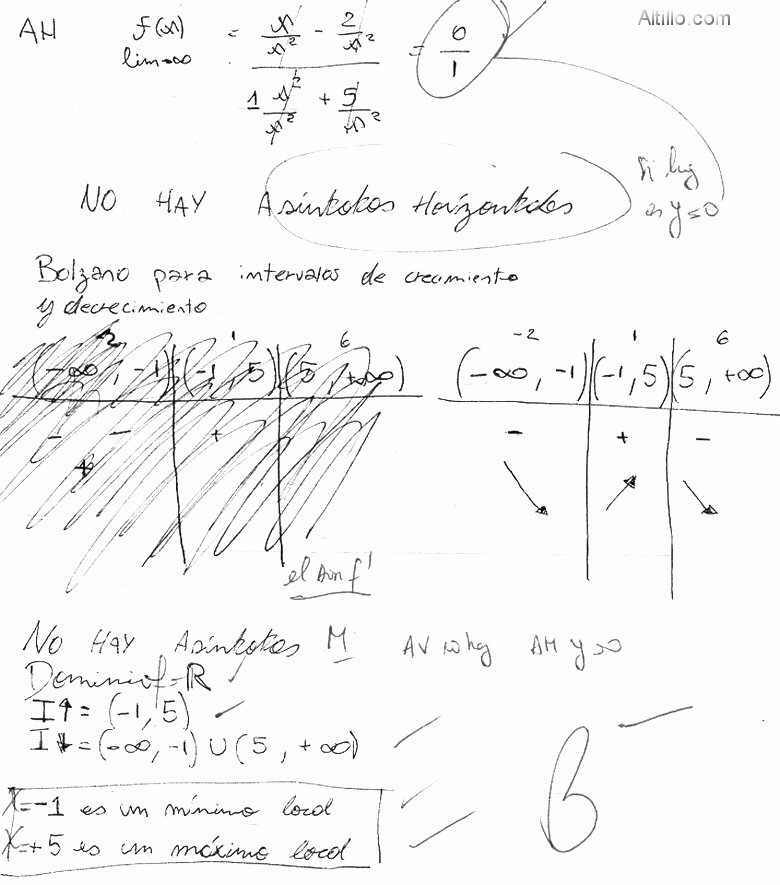 Altillo.com
AH f(x) = x/x² - 2/x² = 0/1
lim→∞ 1 x²/x² + 5/x²
NO HAY Asíntotas Horizontales
Si hay
es y=0
Bolzano para intervalos de crecimiento
y decrecimiento
-2 1 6
(-∞, -1) (-1, 5) (5, +∞)
- - +
+
-2 1 6
(-∞, -1) (-1, 5) (5, +∞)
- + -
↘ ↗ ↘
el f'
NO HAY Asíntotas AV no hay AH y=0
Dominio f = ℝ
I↑ = (-1, 5)
I↓ = (-∞, -1) ∪ (5, +∞)
B
X=-1 es un mínimo local
X=+5 es un máximo local